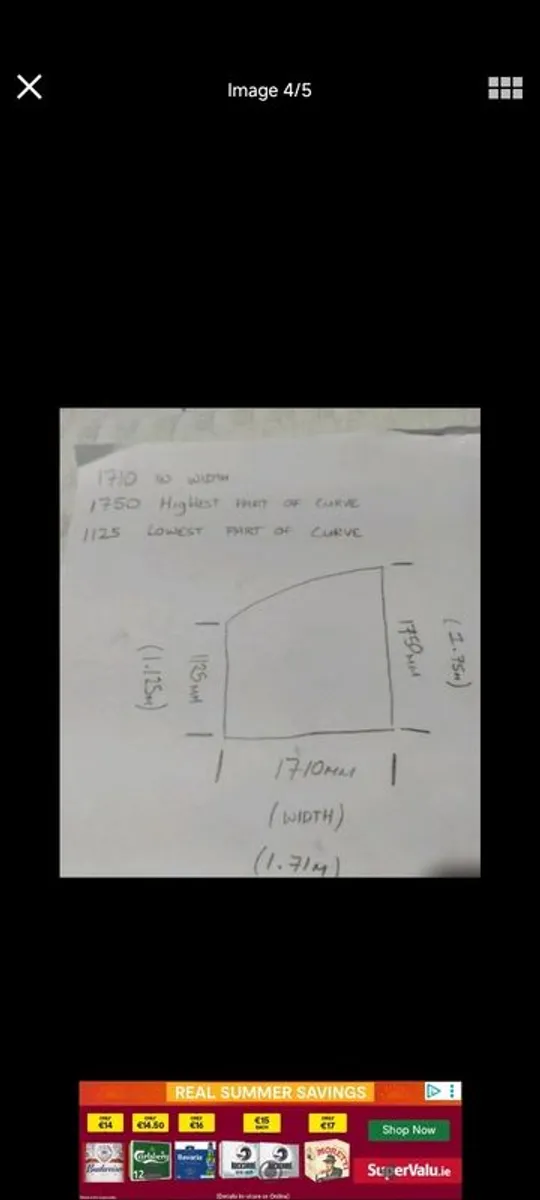 Image 4/5
1710 IN WIDTH
1750 HIgHEST PART OF CURVE
1125 LOWEST PART OF CURVE
1125MM
(1.125M)
1750MM
(1.75M)
1710MM
(WIDTH)
(1.71M)
REAL SUMMER SAVINGS
ONLY €14
ONLY €14.50
ONLY €16
€15 EACH
ONLY €17
Shop Now
Budweiser
Carlsberg
12
Bavaria
ROCKSHORE
MORETTI
SuperValu.ie
(Details in-store or Online)